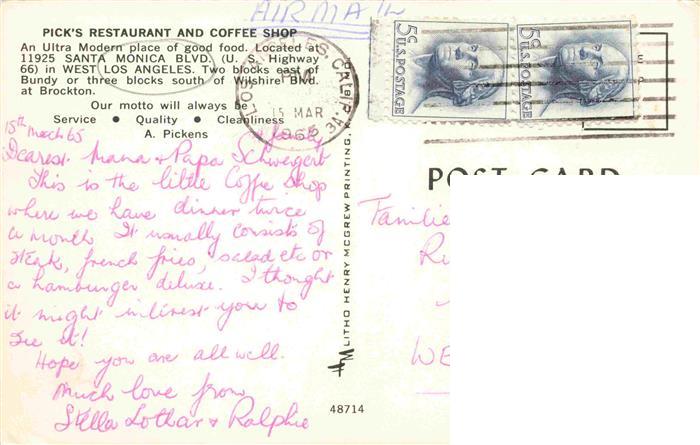 AIR MAIL
PICK'S RESTAURANT AND COFFEE SHOP
An Ultra Modern place of good food. Located at
11925 SANTA MONICA BLVD. (U. S. Highway
66) in WEST LOS ANGELES. Two blocks east of
Bundy or three blocks south of Wilshire Blvd.
at Brockton.
Our motto will always be
Service • Quality • Cleanliness
A. Pickens
15 MAR
5¢ U.S. POSTAGE
5¢ U.S. POSTAGE
15th March 65
Dearest Mama + Papa Schweigert
This is the little Coffie Shop
where we have dinner twice
a month It usually consists of
steak, french fries, salad etc or
a hamburger deluxe. I thought
it might interest you to
see it!
Hope you are all well.
Much love from
Stella Lothar + Ralphie
LITHO HENRY MCGREW PRINTING,
48714
POST CARD
Familie
WE